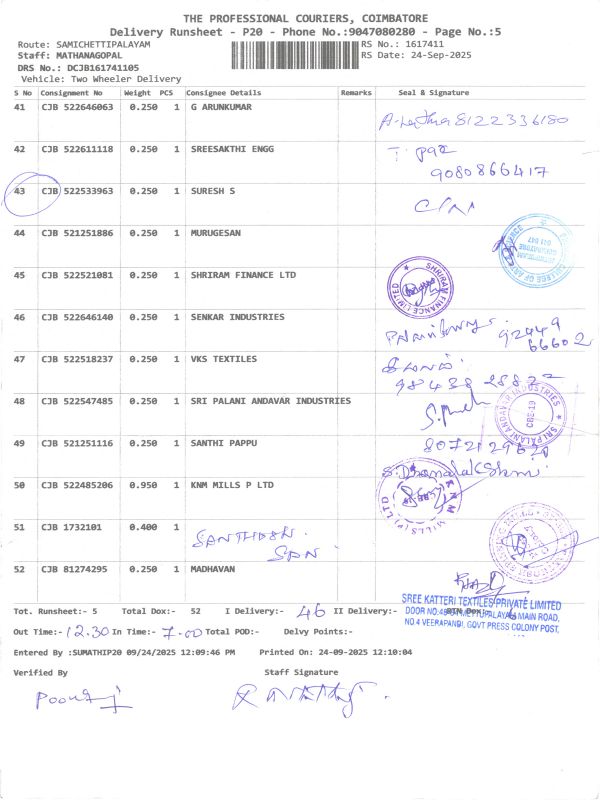 THE PROFESSIONAL COURIERS, COIMBATORE
Delivery Runsheet - P20 - Phone No.:9047080280 - Page No.:5
Route: SAMICHETTIPALAYAM RS No.: 1617411
Staff: MATHANAGOPAL RS Date: 24-Sep-2025
DRS No.: DCJB161741105
Vehicle: Two Wheeler Delivery
S No Consignment No Weight PCS Consignee Details Remarks Seal & Signature
41 CJB 522646063 0.250 1 G ARUNKUMAR
8122336180
42 CJB 522611118 0.250 1 SREESAKTHI ENGG
9080866417
43 CJB 522533963 0.250 1 SURESH S
44 CJB 521251886 0.250 1 MURUGESAN
45 CJB 522521081 0.250 1 SHRIRAM FINANCE LTD
SHRIRAM FINANCE LIMITED
46 CJB 522646140 0.250 1 SENKAR INDUSTRIES
92449
66602
47 CJB 522518237 0.250 1 VKS TEXTILES
98428 28822
48 CJB 522547485 0.250 1 SRI PALANI ANDAVAR INDUSTRIES
SRI PALANI ANDAVAR INDUSTRIES
49 CJB 521251116 0.250 1 SANTHI PAPPU
S. Dhanalakshmi
50 CJB 522485206 0.950 1 KNM MILLS P LTD
MILLS (P) LTD
51 CJB 1732101 0.400 1
52 CJB 81274295 0.250 1 MADHAVAN
SREE KATTERI TEXTILES PRIVATE LIMITED
NO.4 VEERAPANDI, GOVT PRESS COLONY POST,
Tot. Runsheet:- 5 Total Dox:- 52 I Delivery:- 46 II Delivery:-
Out Time:- 12.30 In Time:- 7.00 Total POD:- Delvy Points:-
Entered By :SUMATHIP20 09/24/2025 12:09:46 PM Printed On: 24-09-2025 12:10:04
Verified By Staff Signature